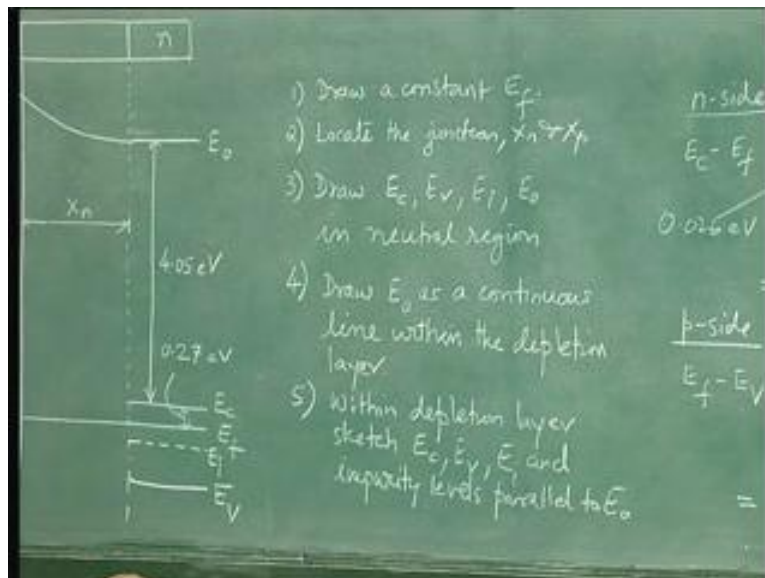 n
E₀
xₙ
4.05 eV
0.27 eV
E_c
E_f
E_i
E_V
1) Draw a constant E_f.
2) Locate the junction, xₙ & xₚ
3) Draw E_c, E_V, E_i, E₀
in neutral region
4) Draw E₀ as a continuous
line within the depletion
layer
5) Within depletion layer
sketch E_c, E_V, E_i and
impurity levels parallel to E₀
n-side
E_c - E_f
0.026 eV
=
p-side
E_f - E_V
=